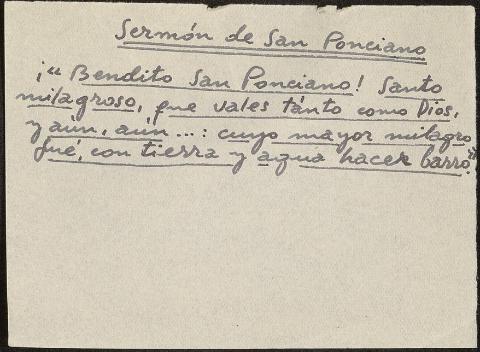 Sermón de San Ponciano
¡“Bendito San Ponciano! Santo
milagroso, que vales tánto como Dios,
y aún, aún...: cuyo mayor milagro
fué, con tierra y agua hacer barro.”